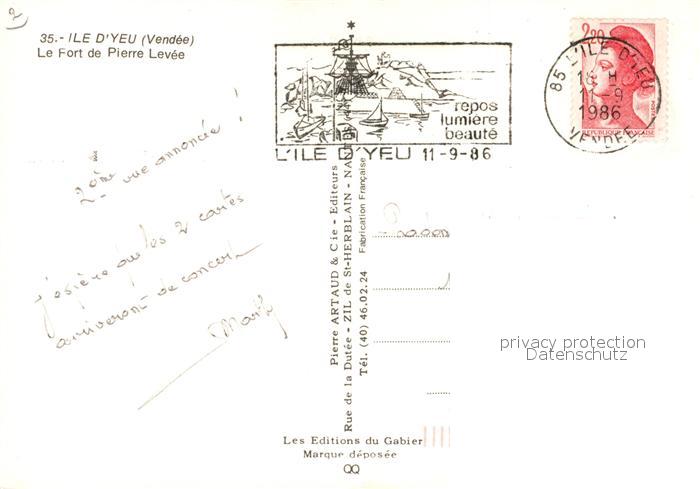 2
35.- ILE D'YEU (Vendée)
Le Fort de Pierre Levée
repos
lumière
beauté
L'ILE D'YEU 11-9-86
2,20
85 L'ILE D'YEU
18 H
11-9
1986
VENDEE
REPUBLIQUE FRANÇAISE
2ème vue annoncée !
j'espère que les 2 cartes
arriveront de concert
Pierre ARTAUD & Cie - Editeurs
Rue de la Dutée - ZIL de St-HERBLAIN - NAN
Tél. (40) 46.02.24 Fabrication Française
privacy protection
Datenschutz
Les Editions du Gabier
Marque déposée